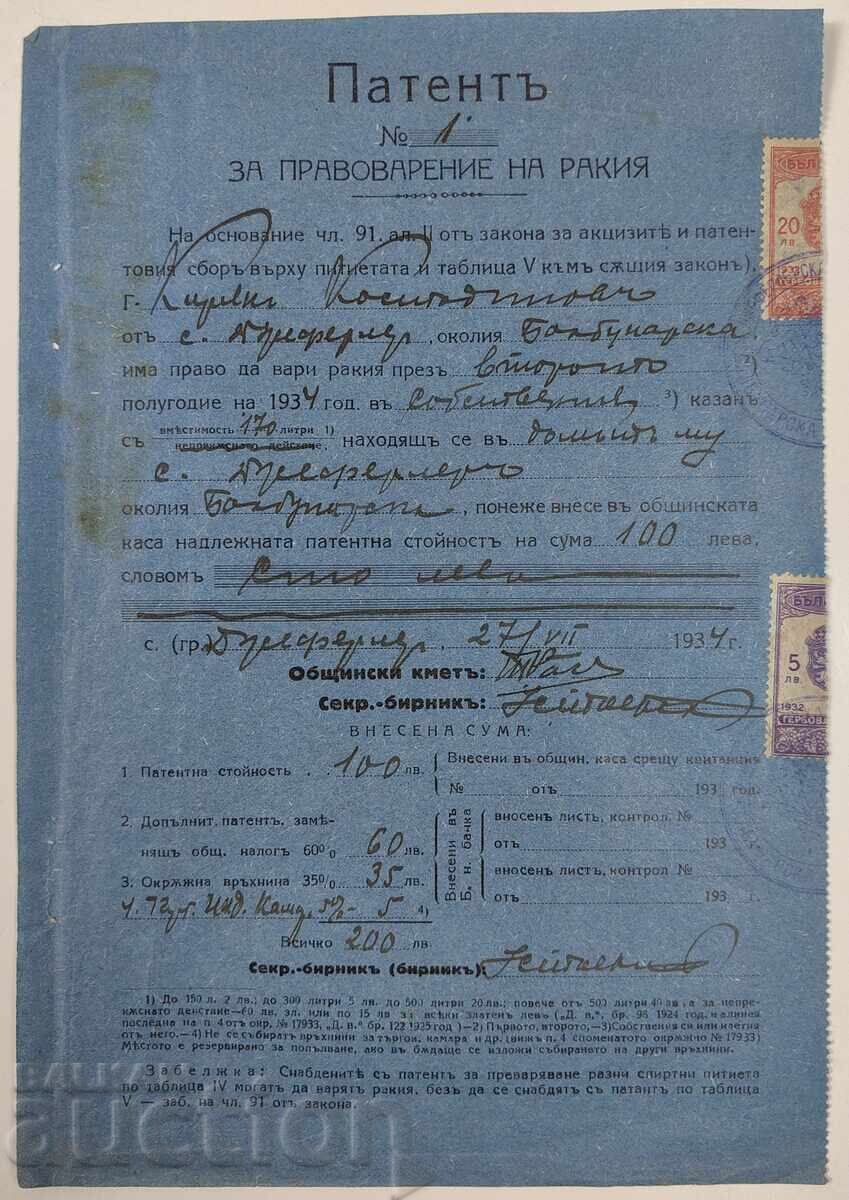 Патентъ
№ 1
ЗА ПРАВОВАРЕНИЕ НА РАКИЯ
На основание чл. 91. ал II отъ закона за акцизитѣ и патен-
товия сборъ върху питиетата и таблица V къмъ сѫщия законъ),
г-
отъ с. , околия Балбунарска
има право да вари ракия презъ второто 2)
полугодие на 1934 год. въ собственъ 3) казанъ
съ вмѣстимость 170 литри 1)
неприжснато действие, находящъ се въ домътъ му
с.
околия Балбунарска, понеже внесе въ общинската
каса надлежната патентна стойность на сума 100 лева,
словомъ сто лева
с. (гр.) 27/VII 1934 г.
Общински кметъ:
Секр.-бирникъ:
ВНЕСЕНА СУМА:
1. Патентна стойность . . 100 лв.
Внесени въ общин. каса срещу квитанция
№ отъ 193 год.
2. Допълнит. патент. замѣ-
нящъ общ. налогъ 60% 60 лв.
3. Окрѫжна връхнина 35% 35 лв.
4. Инд. Кам. 5% - 5 4)
Всичко 200 лв
Внесени въ
Б. н. банка
вносенъ листъ, контрол. №
отъ 193 г.
вносенъ листъ, контрол №
отъ 193 г.
Секр.-бирникъ (бирникъ):
1) До 150 л. 2 лв. до 300 литри 5 лв. до 500 литри 20 лв.; повече отъ 500 литри 40 лв, а за непре-
кѫснато действие—60 лв. зл. или по 15 лв за всѣки златенъ левъ („Д. в.“, бр. 98 1924 год. и алинея
последна на п. 4 отъ окр. № 17933, „Д. в.“ бр. 122 1925 год )—2) Първото, второто,—3) Собствения си или наетия
отъ него.—4) Не се събиратъ връхнини за търгов. камара и др. (вижъ п. 4 споменатото окрѫжно № 17933)
Мѣстото е резервирано за попълване, ако въ бѫдаще се изложи събирането на други връхнини.
Забележка: Снабденитѣ съ патентъ за преваряване разни спиртни питиета
по таблица IV могатъ да варятъ ракия, безъ да се снабдятъ съ патантъ по таблица
V — заб. на чл. 91 отъ закона.
БЪЛ
20
ЛВ.
БЪЛГ
5
ЛВ.
1932
ГЕРБОВА
auction